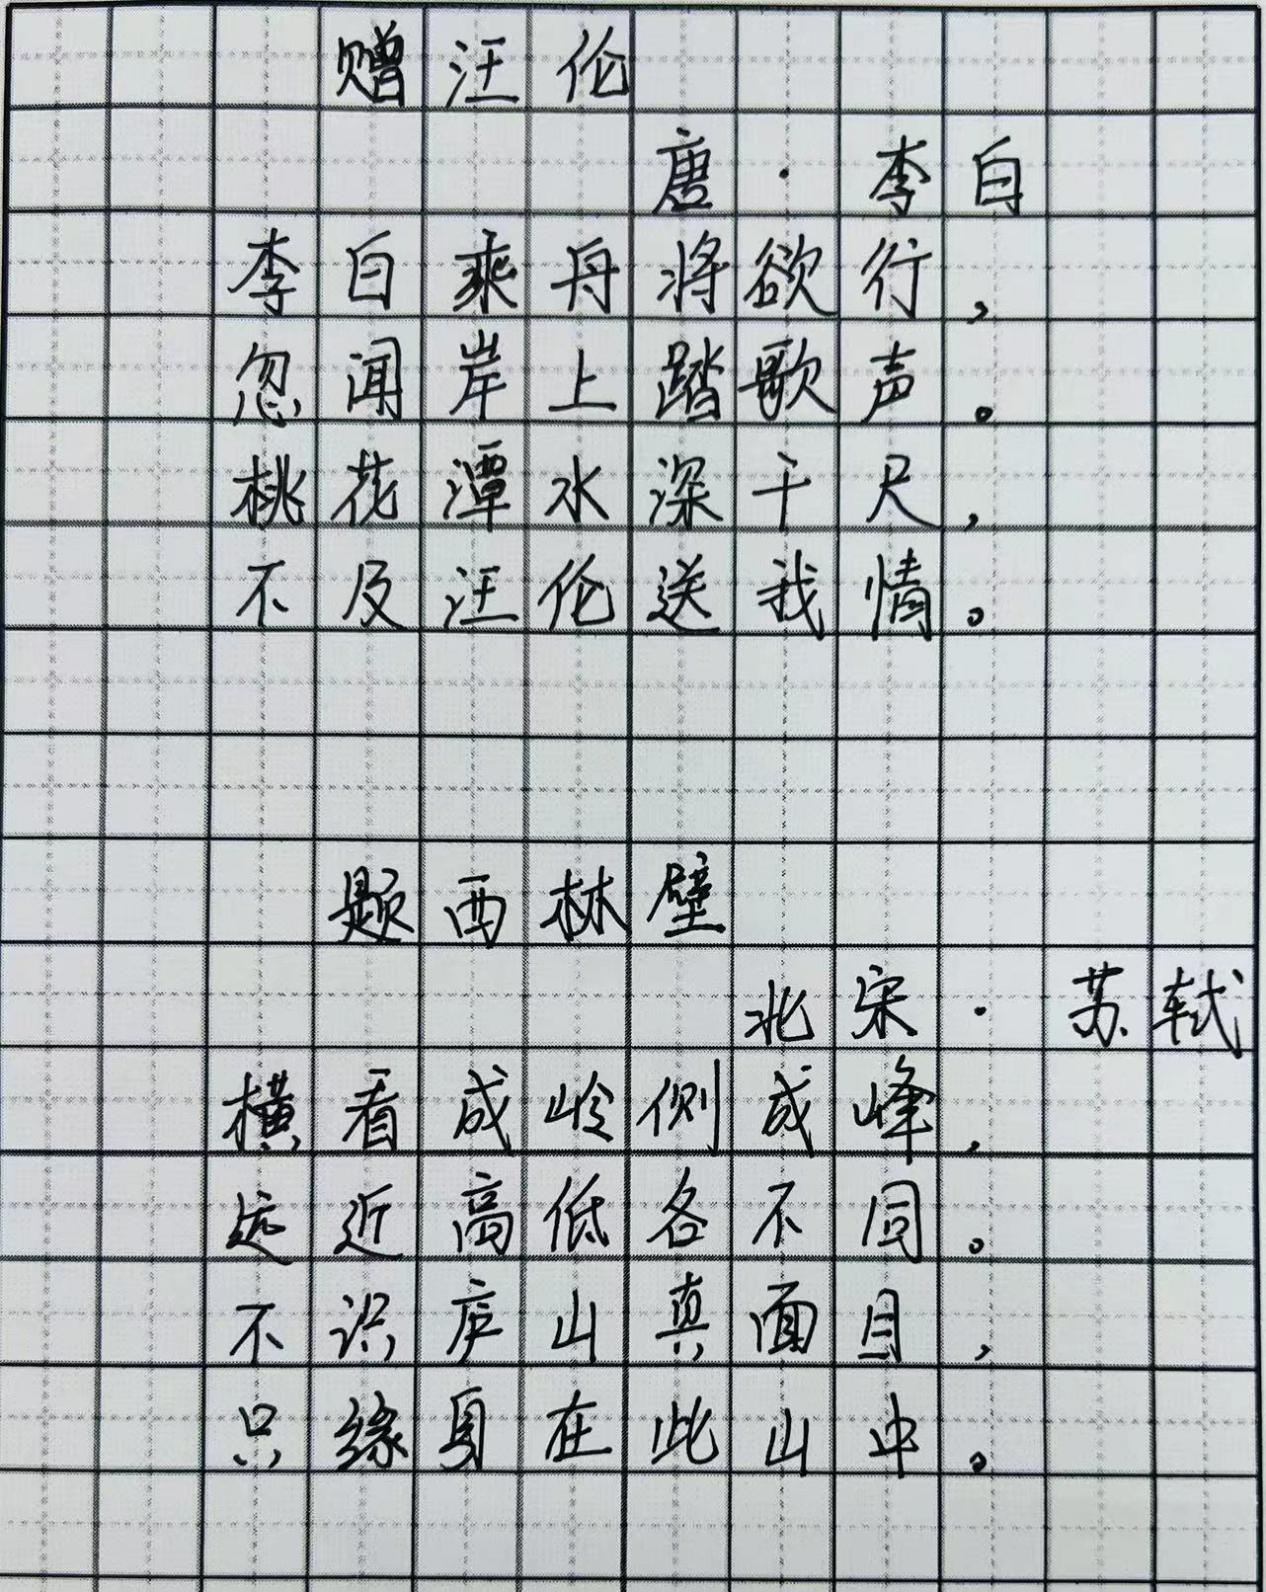 赠汪伦
唐·李白
李白乘舟将欲行，
忽闻岸上踏歌声。
桃花潭水深千尺，
不及汪伦送我情。
题西林壁
北宋·苏轼
横看成岭侧成峰，
远近高低各不同。
不识庐山真面目，
只缘身在此山中。